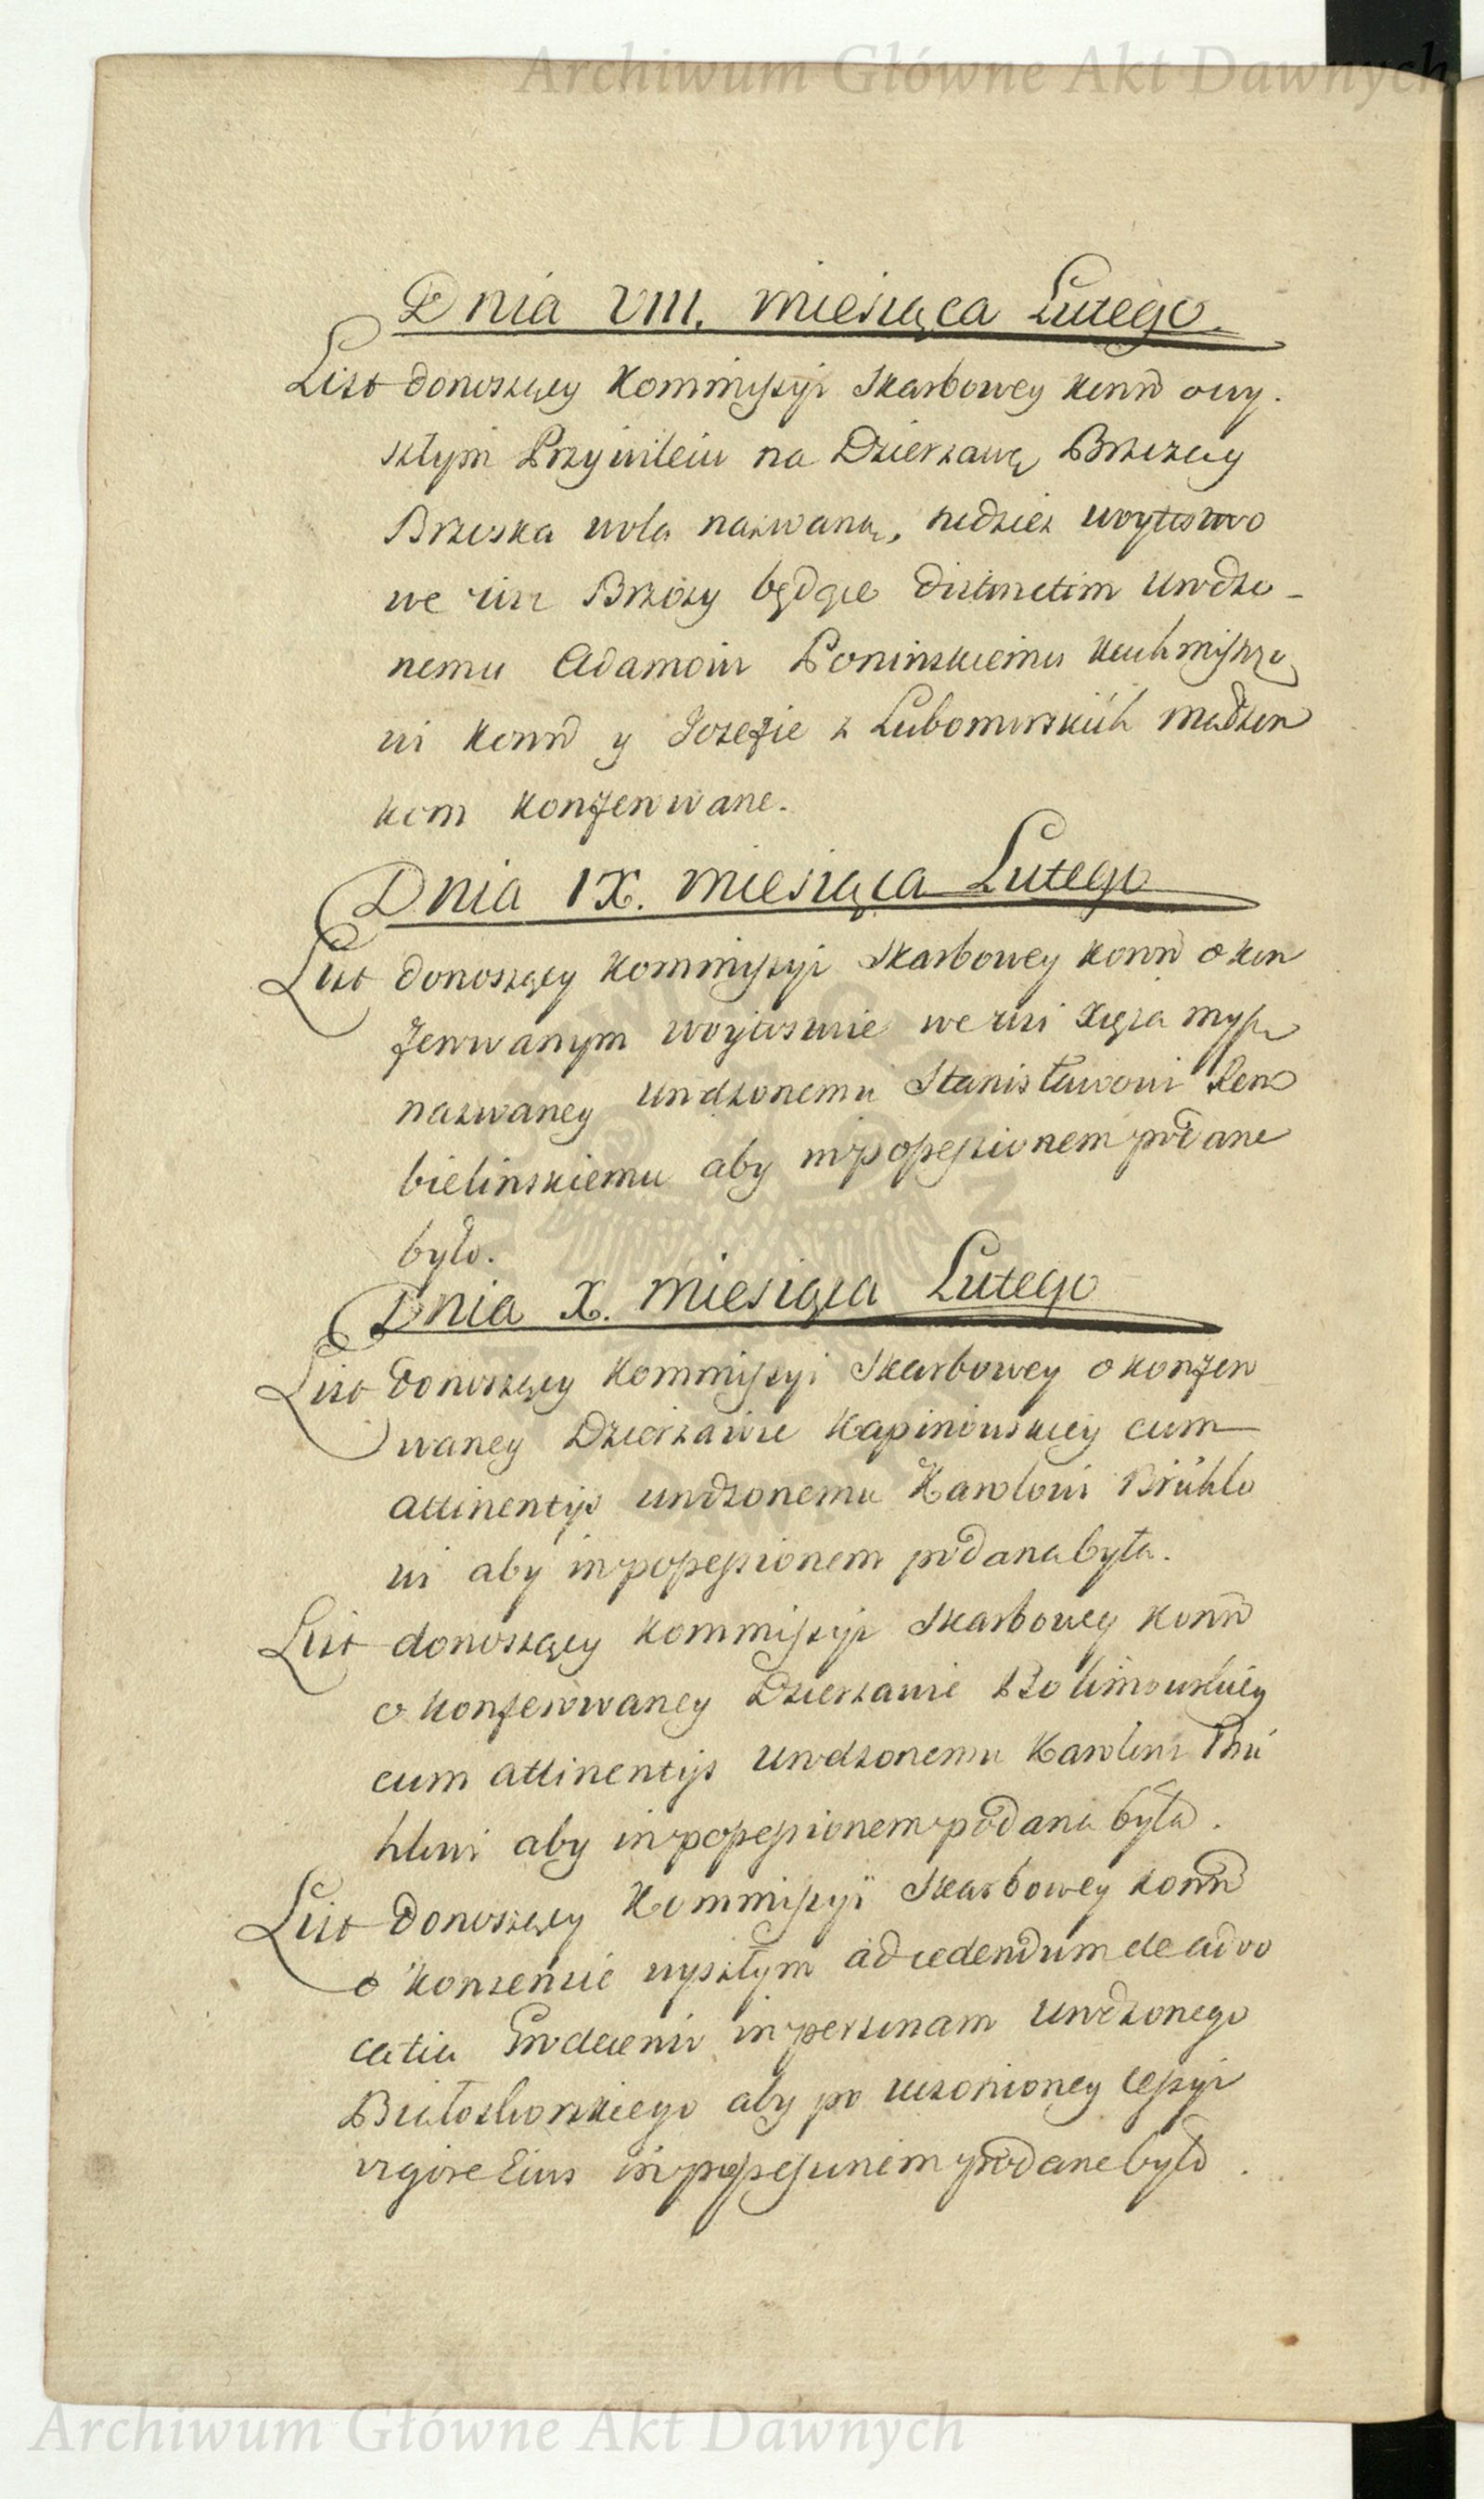 Archiwum Główne Akt Dawnych
Dnia VIII. miesiąca Lutego.
List donoszący Kommissyi Skarbowey Konn̄ o wy.
szłym Przywileiu na Dzierzawę Brzezey
Brzeska wola nazwaną, tudziez woytostwo
we wsi Brzozy będące distinctim Urodzo-
nemu Adamowi Ponińskiemu Kuchmistrzo
wi Konn̄ y Jozefie z Lubomirskich małżon
kom konferowane.
Dnia IX. miesiąca Lutego
List donoszący Kommissyi Skarbowey Konn̄ o kon
ferowanym woytostwie we wsi Xięża
nazwaney Urodzonemu Stanisławowi Rem
bielinskiemu aby in possessionem podane
było.
Dnia X. miesiąca Lutego
List donoszący Kommissyi Skarbowey o konfero
waney Dzierzawie Kapinowskiey cum
attinentijs urodzonemu Karolowi Brühlo
wi aby in possessionem podana była.
List donoszący Kommissyi Skarbowey Konn̄
o konferowaney Dzierzawie Bolimowskiey
cum attinentijs Urodzonemu Karolowi Brü
hlowi aby in possessionem podana była.
List donoszący Kommissyi Skarbowey Konn̄
o Konsensie wyszłym ad cedendum de advo
catia in personam Urodzonego
Białochorskiego aby po uczonioney cessyi
vigore Eius in possessionem podane było.
Archiwum Główne Akt Dawnych